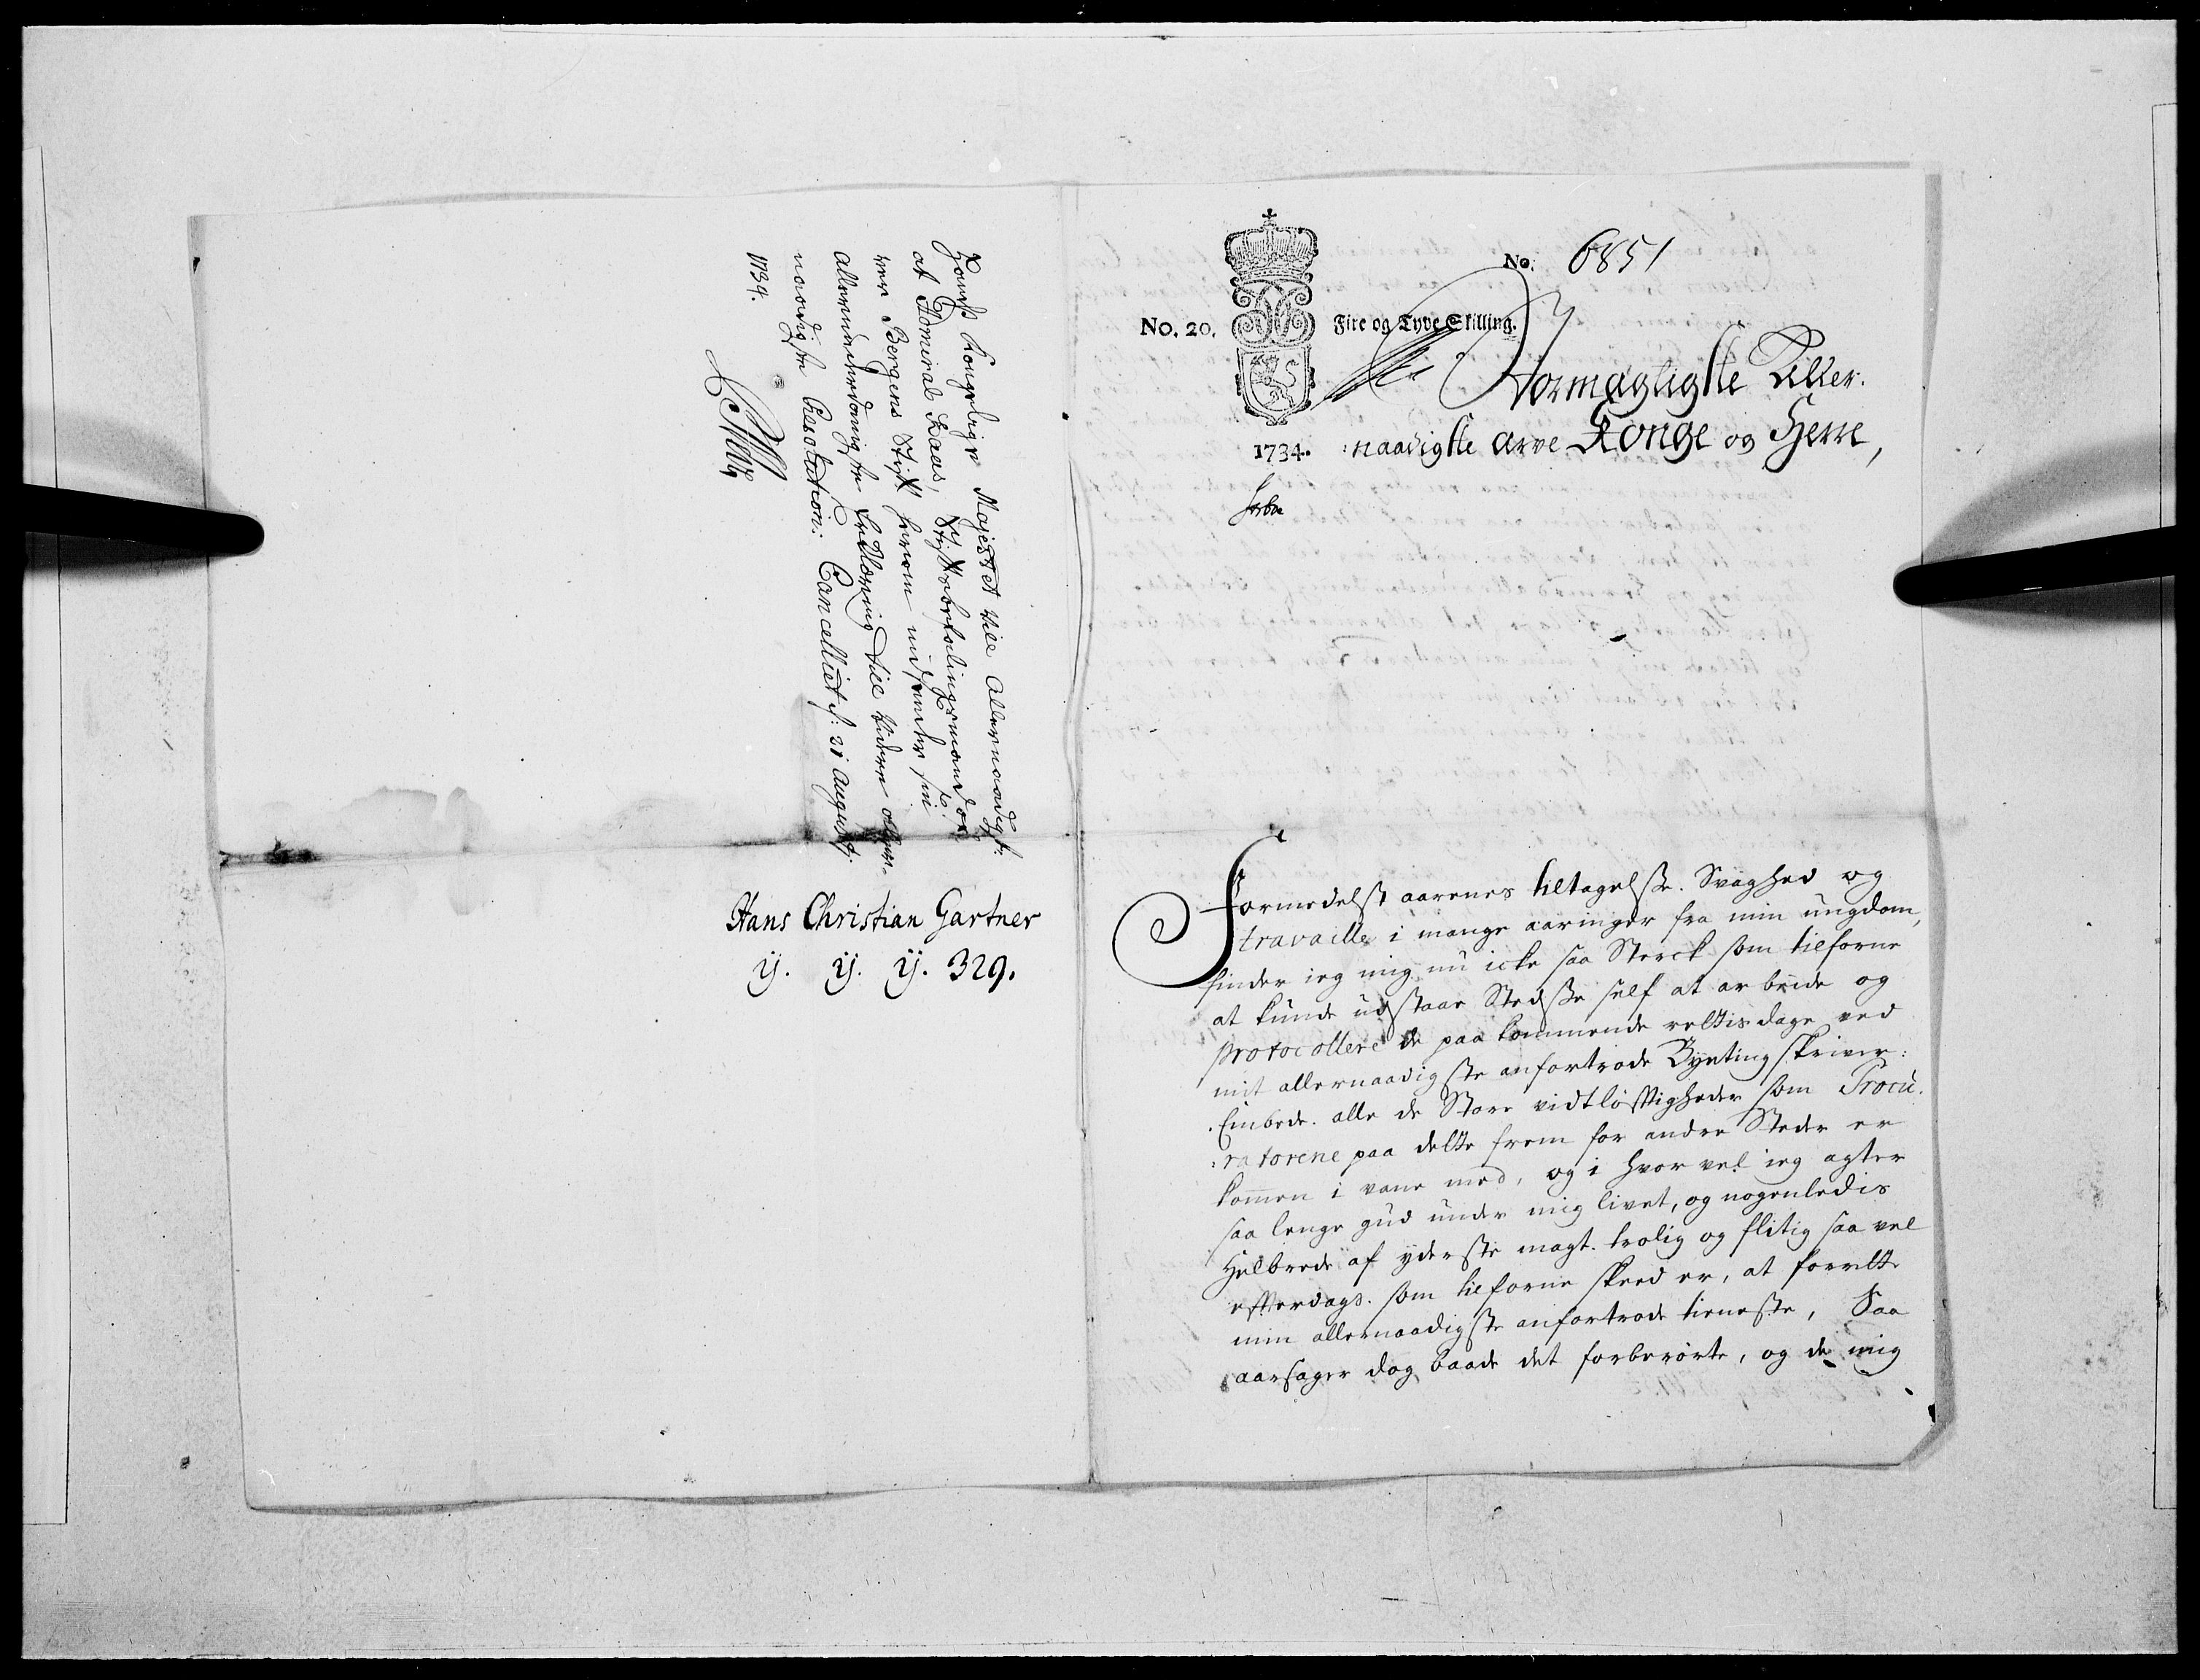 Hans Kongelige Majestet vill Allernaadigst:
at Admiral Kaas, Stiftbefalingsmand o-
ver Bergens Stift herom indsender sin
allerunderdanigste Erklæring till videre aller-
naadigste Resolution. Cancelliet d: 21 August:
1734.
Hans Christian Gartner
ij. ij. ij. 329.
No. 6851
No. 20. Fire og Tyve Skilling.
Stormægtigste Aller-
1734. :naadigste Arve Konge og Herre,
Formedelst aarenes tiltagelsse. Svaghed og
travaille i mange aaringer fra min ungdom,
finder ieg mig nu icke saa Sterck som tilforne
at kunde udstaae Stedsse self at arbeide og
protocollere de paa kommende rettisdage ved
mit allernaadigste anfortroede Byetingskriver:
Embede. alle de Store vidtløftigheder som Procu-
:ratorene paa dette frem for andre Steder er
kommen i vane med, og i hvor vel ieg agter
saa lenge gud under mig livet, og nogenledis
Helbrede af yderste magt. trolig og flitig saa vel
efterdags. som tilforne skeed er, at forrette
min allernaadigste anfortroede tieneste, Saa
aarsager dog baade det forberørte, og de mig